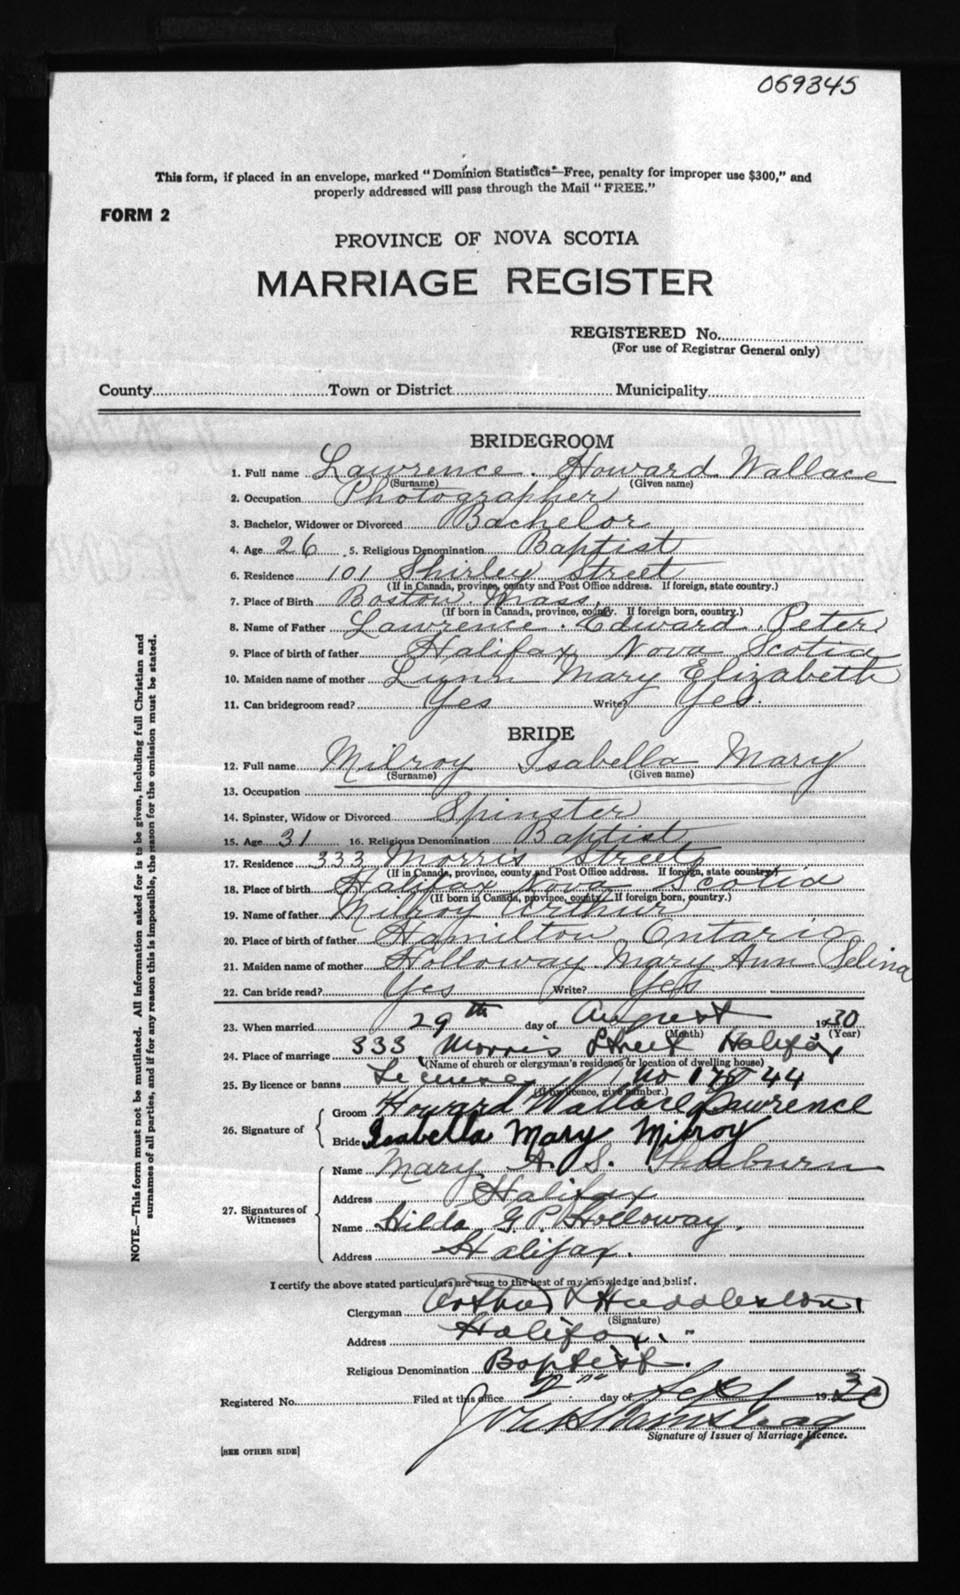 069345
This form, if placed in an envelope, marked "Dominion Statistics—Free, penalty for improper use $300," and
properly addressed will pass through the Mail "FREE."
FORM 2
PROVINCE OF NOVA SCOTIA
MARRIAGE REGISTER
REGISTERED No.
(For use of Registrar General only)
County Town or District Municipality
BRIDEGROOM
1. Full name Lawrence. Howard Wallace
(Surname) (Given name)
2. Occupation Photographer
3. Bachelor, Widower or Divorced Bachelor
4. Age 26 5. Religious Denomination Baptist
6. Residence 101 Shirley Street
(If in Canada, province, county and Post Office address. If foreign, state country.)
7. Place of Birth Boston. Mass.
(If born in Canada, province, county. If foreign born, country.)
8. Name of Father Lawrence. Edward Peter
9. Place of birth of father Halifax Nova Scotia
10. Maiden name of mother Lynn Mary Elizabeth
11. Can bridegroom read? Yes Write? Yes.
BRIDE
12. Full name Milroy Isabella Mary
(Surname) (Given name)
13. Occupation
14. Spinster, Widow or Divorced Spinster
15. Age 31 16. Religious Denomination Baptist
17. Residence 333 Morris Street
(If in Canada, province, county and Post Office address. If foreign, state country.)
18. Place of birth Halifax Nova Scotia
(If born in Canada, province, county. If foreign born, country.)
19. Name of father Milroy Arthur
20. Place of birth of father Hamilton Ontario
21. Maiden name of mother Holloway Mary Ann Selina
22. Can bride read? Yes Write? Yes
23. When married 29th day of August 1930
(Month) (Year)
24. Place of marriage 333 Morris Street Halifax
(Name of church or clergyman's residence or location of dwelling house)
25. By licence or banns License No 17844
(If by licence, give number.)
26. Signature of Groom Howard Wallace Lawrence
Bride Isabella Mary Milroy
27. Signatures of Witnesses
Name Mary A. S. Thaburn
Address Halifax
Name Hilda G. P. Holloway.
Address Halifax.
I certify the above stated particulars are true to the best of my knowledge and belief.
Clergyman Arthur Huddleston
(Signature)
Address Halifax. "
Religious Denomination Baptist.
Registered No. Filed at this office 2nd day of Sept 1930
Signature of Issuer of Marriage Licence.
[SEE OTHER SIDE]
NOTE.—This form must not be mutilated. All information asked for is to be given, including full Christian and
surnames of all parties, and if for any reason this is impossible, the reason for the omission must be stated.